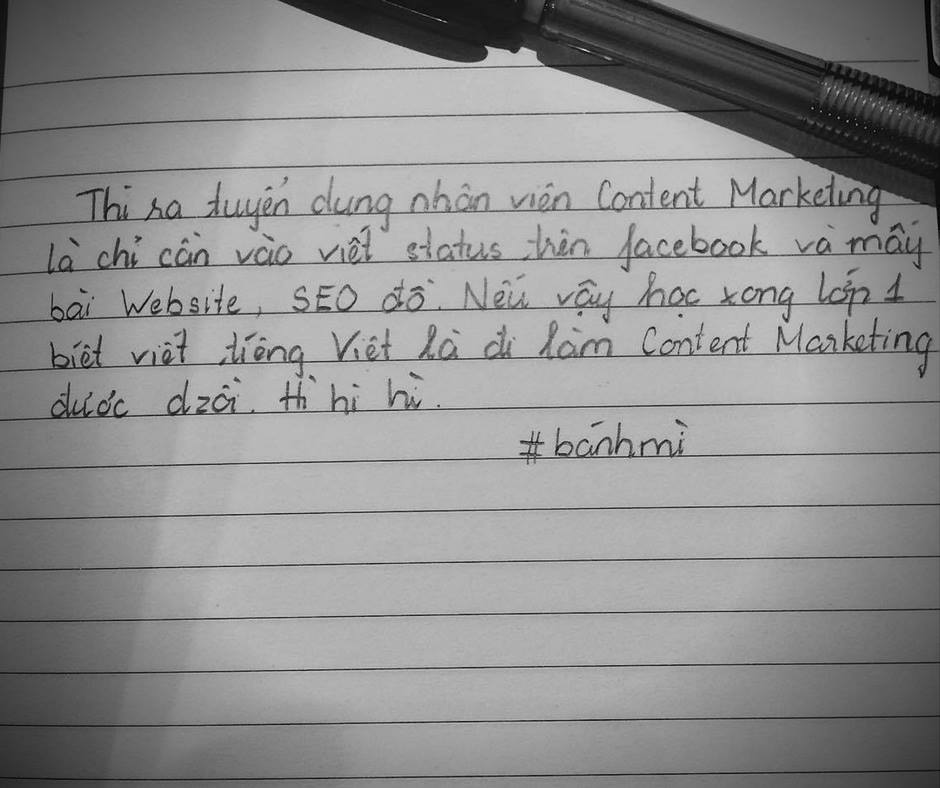 Thì ra tuyển dụng nhân viên Content Marketing
là chỉ cần vào viết status trên facebook và mấy
bài Website, SEO đồ. Nếu vậy học xong lớp 1
biết viết tiếng Việt là đi làm Content Marketing
được dzồi. Hì hì hì.
#bánhmì